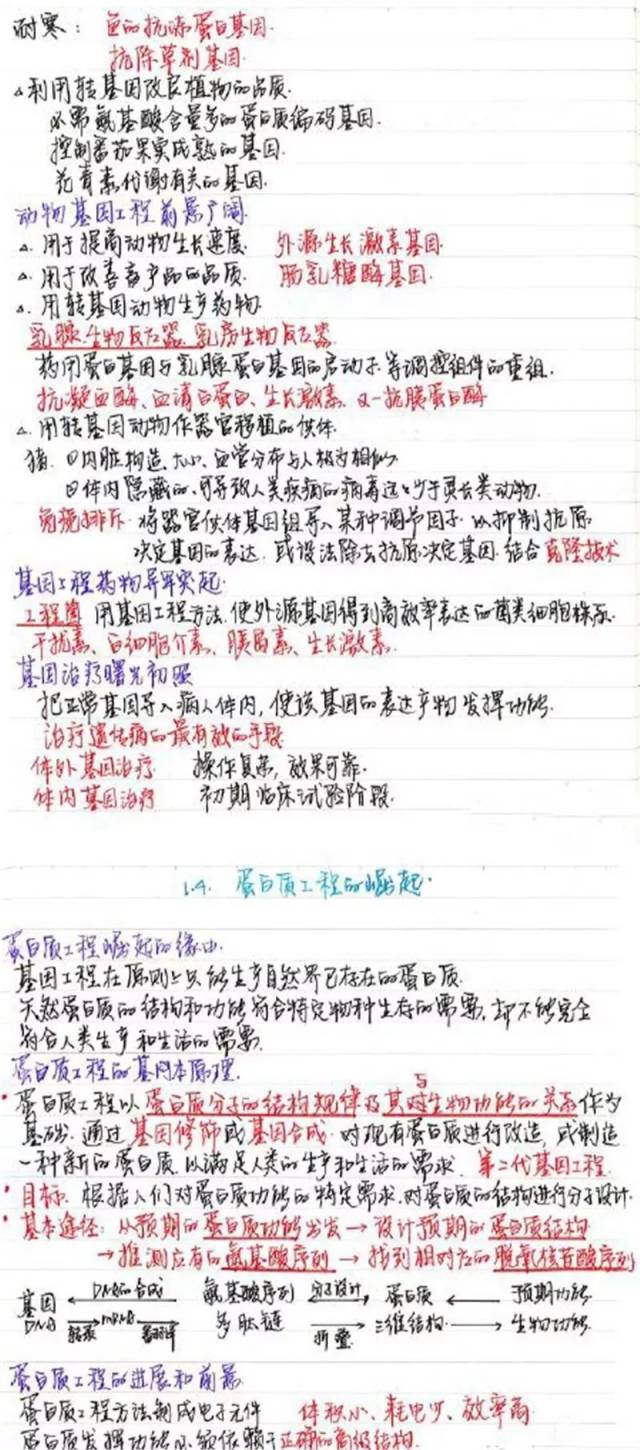 耐寒：鱼的抗冻蛋白基因.
抗除草剂基因.
△利用转基因改良植物的品质.
必需氨基酸含量多的蛋白质编码基因.
控制番茄果实成熟的基因.
花青素代谢有关的基因.
动物基因工程前景广阔
△.用于提高动物生长速度. 外源生长激素基因.
△.用于改善畜产品的品质. 肠乳糖酶基因.
△.用转基因动物生产药物.
乳腺生物反应器、乳房生物反应器
药用蛋白基因与乳腺蛋白基因的启动子等调控组件的重组.
抗凝血酶、血清白蛋白、生长激素、α-抗胰蛋白酶
△.用转基因动物作器官移植的供体.
猪. ①内脏构造、大小、血管分布与人极为相似.
②体内隐藏的、可导致人类疾病的病毒远少于灵长类动物.
免疫排斥. 将器官供体基因组导入某种调节因子.以抑制抗原
决定基因的表达.或设法除去抗原决定基因.结合克隆技术
基因工程药物异军突起.
工程菌 用基因工程方法.使外源基因得到高效率表达的菌类细胞株系.
干扰素、白细胞介素、胰岛素、生长激素.
基因治疗曙光初照
把正常基因导入病人体内,使该基因的表达产物发挥功能.
治疗遗传病的最有效的手段
体外基因治疗. 操作复杂,效果可靠.
体内基因治疗 初期临床试验阶段.
1.4. 蛋白质工程的崛起.
蛋白质工程崛起的缘由.
基因工程在原则上只能生产自然界已存在的蛋白质.
天然蛋白质的结构和功能符合特定物种生存的需要,却不能完全
符合人类生产和生活的需要.
蛋白质工程的基本原理.
·蛋白质工程以蛋白质分子的结构规律及其与生物功能的关系作为
基础.通过基因修饰或基因合成.对现有蛋白质进行改造,或制造
一种新的蛋白质.以满足人类的生产和生活的需求. 第二代基因工程.
·目标. 根据人们对蛋白质功能的特定需求.对蛋白质的结构进行分子设计.
·基本途径:从预期的蛋白质功能出发→设计预期的蛋白质结构
→推测应有的氨基酸序列→找到相对应的脱氧核苷酸序列
基因 ←DNA的合成 氨基酸序列 分子设计 蛋白质 ← 预期功能
DNA 转录 mRNA 翻译 多肽链 折叠 三维结构 → 生物功能.
蛋白质工程的进展和前景
蛋白质工程方法制成电子元件 体积小、耗电少、效率高
蛋白质发挥功能必须依赖于正确的高级结构.